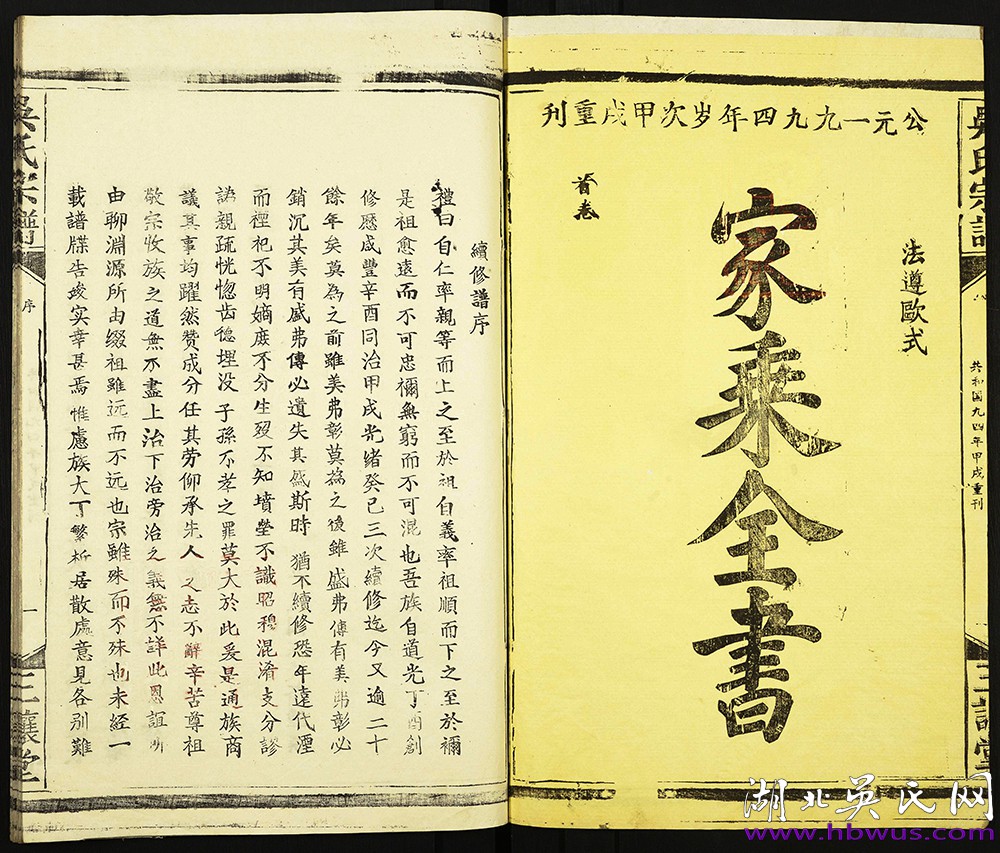 公元一九九四年岁次甲戌重刊
法遵歐式
家乘全書
首卷
吳氏宗譜
共和国九四年甲戌重刊
三讓堂
續修譜序
禮曰自仁率親等而上之至於祖自義率祖順而下之至於禰
是祖愈遠而不可忠禰無窮而不可混也吾族自道光丁酉創
修歷咸豐辛酉同治甲戌光緒癸巳三次續修迄今又逾二十
餘年矣莫為之前雖美弗彰莫為之後雖盛弗傳有美弗彰必
銷沉其美有盛弗傳必遺失其盛斯時猶不續修恐年遠代湮
而禋祀不明嫡庶不分生殁不知墳塋不識昭穆混淆支分謬
誤親疏恍惚齿德埋没子孫不孝之罪莫大於此爰是通族商
議其事均躍然赞成分任其劳仰承先人之志不辭辛苦尊祖
敬宗收族之道無不盡上治下治旁治之義無不詳此恩誼所
由聊淵源所由缀祖雖远而不远也宗雖殊而不殊也未經一
載譜牒告竣实幸甚焉惟慮族大丁繁析居散處意見各别難
吳氏宗譜
序
一
三讓堂
湖北吴氏网
www.hbwus.com